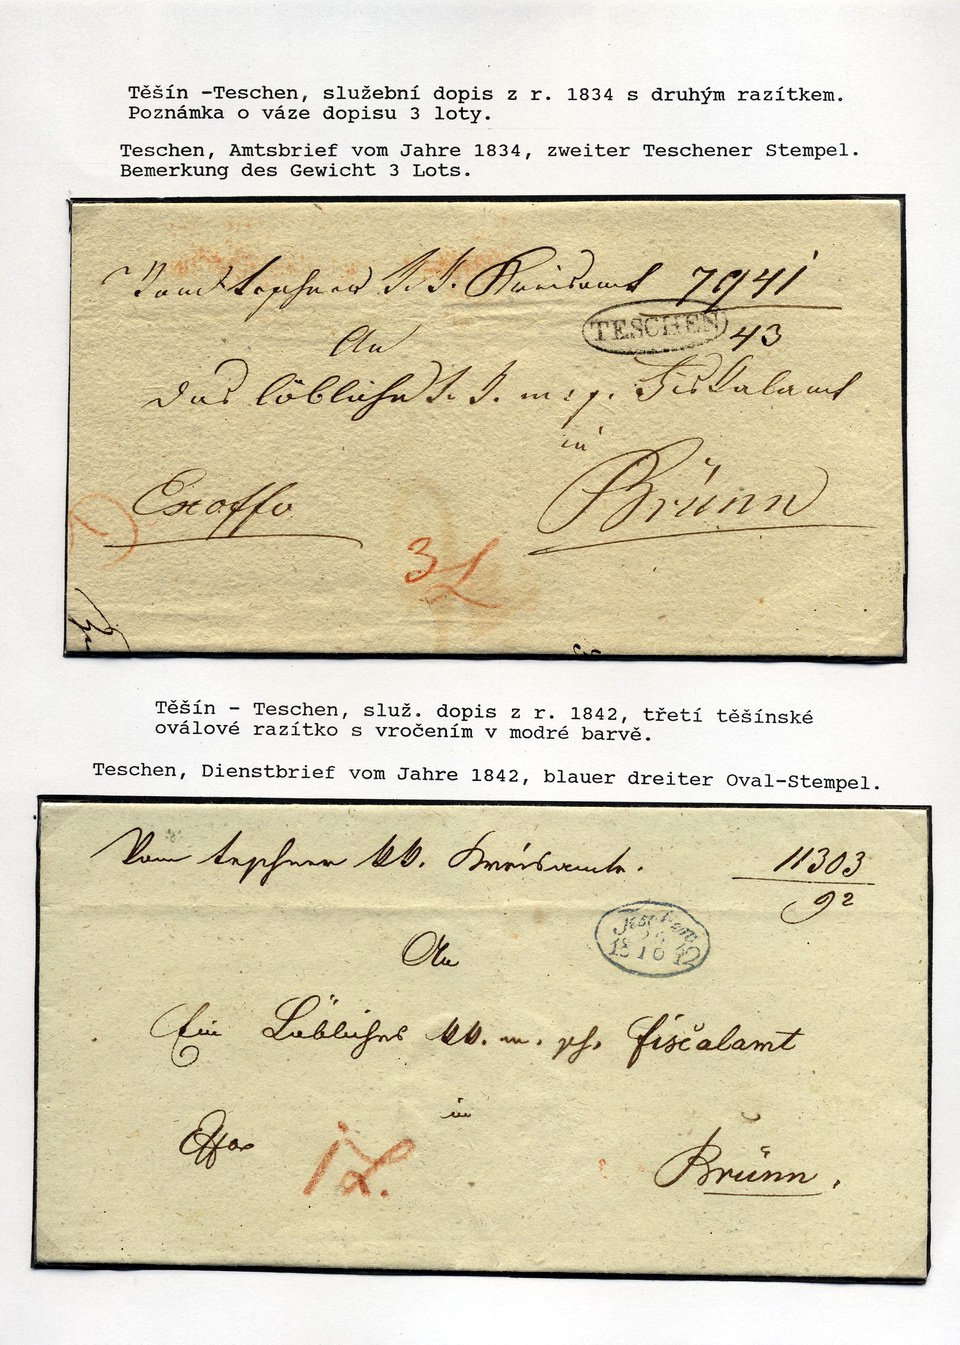 Těšín -Teschen, služební dopis z r. 1834 s druhým razítkem.
Poznámka o váze dopisu 3 loty.
Teschen, Amtsbrief vom Jahre 1834, zweiter Teschener Stempel.
Bemerkung des Gewicht 3 Lots.
Vom teschner k. k. Kreisamt 7941
TESCHEN
43
An
das löbliche k. k. m: s: Fiskalamt
in
Exoffo
Brünn
3 L
Těšín - Teschen, služ. dopis z r. 1842, třetí těšínské
oválové razítko s vročením v modré barvě.
Teschen, Dienstbrief vom Jahre 1842, blauer dreiter Oval-Stempel.
Vom teschner kk. Kreisamte. 11303
92
Teschen
18 10 42
An
Ein Löbliches kk. m. sch. Fiscalamt
in
Exoffo
1 L.
Brünn.